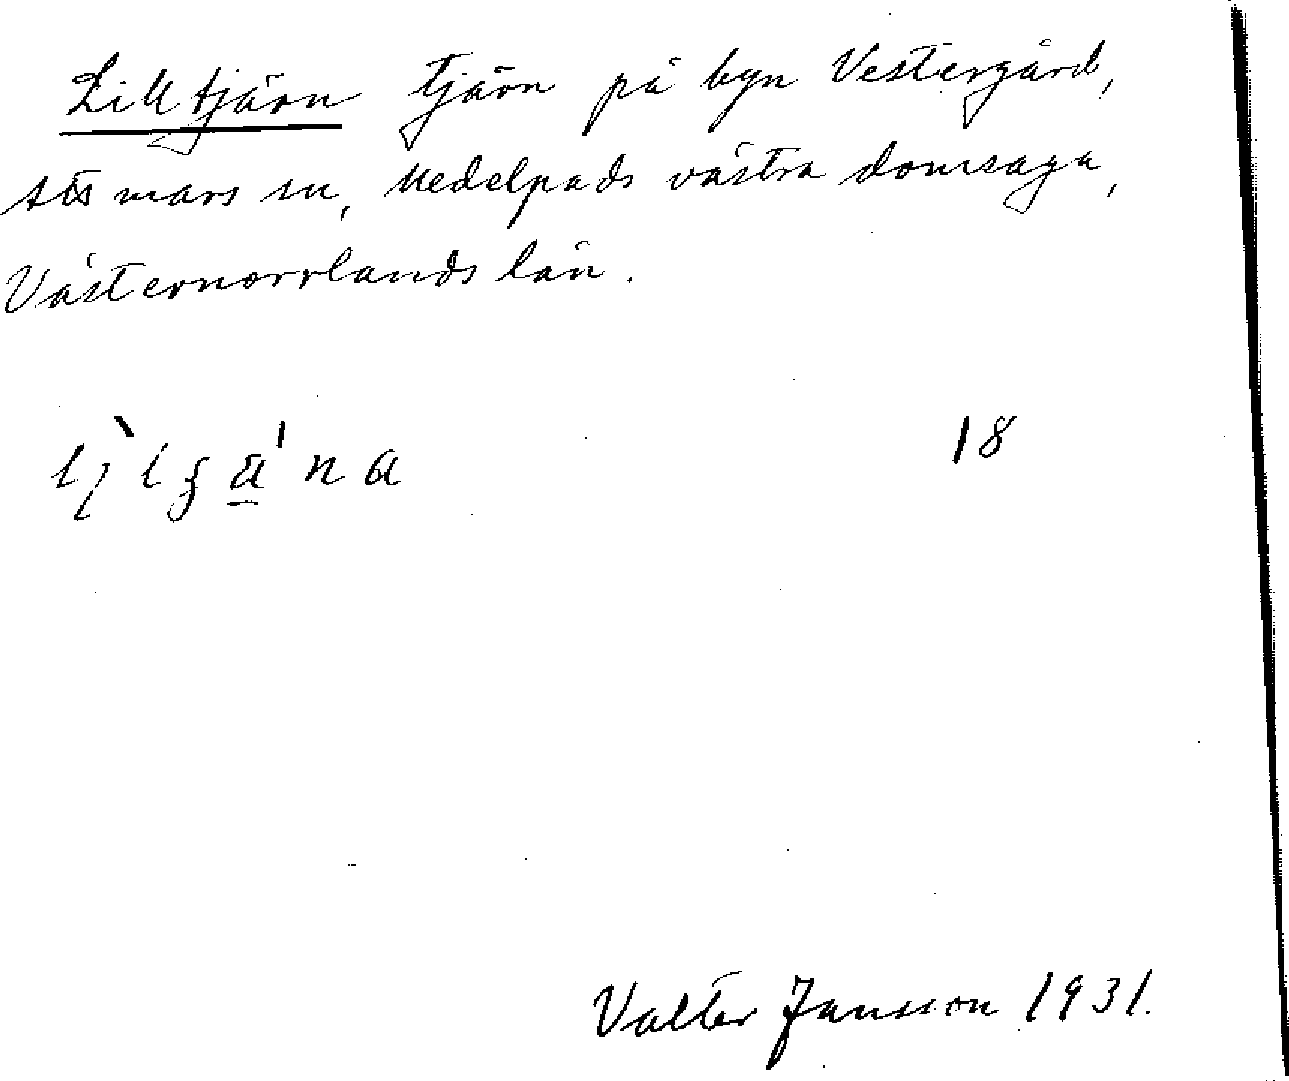 Lilltjärn tjärn på byn Vestergård,
Attmars sn, Medelpads västra domsaga,
Västernorrlands län.
18
Valter Jansson 1931.